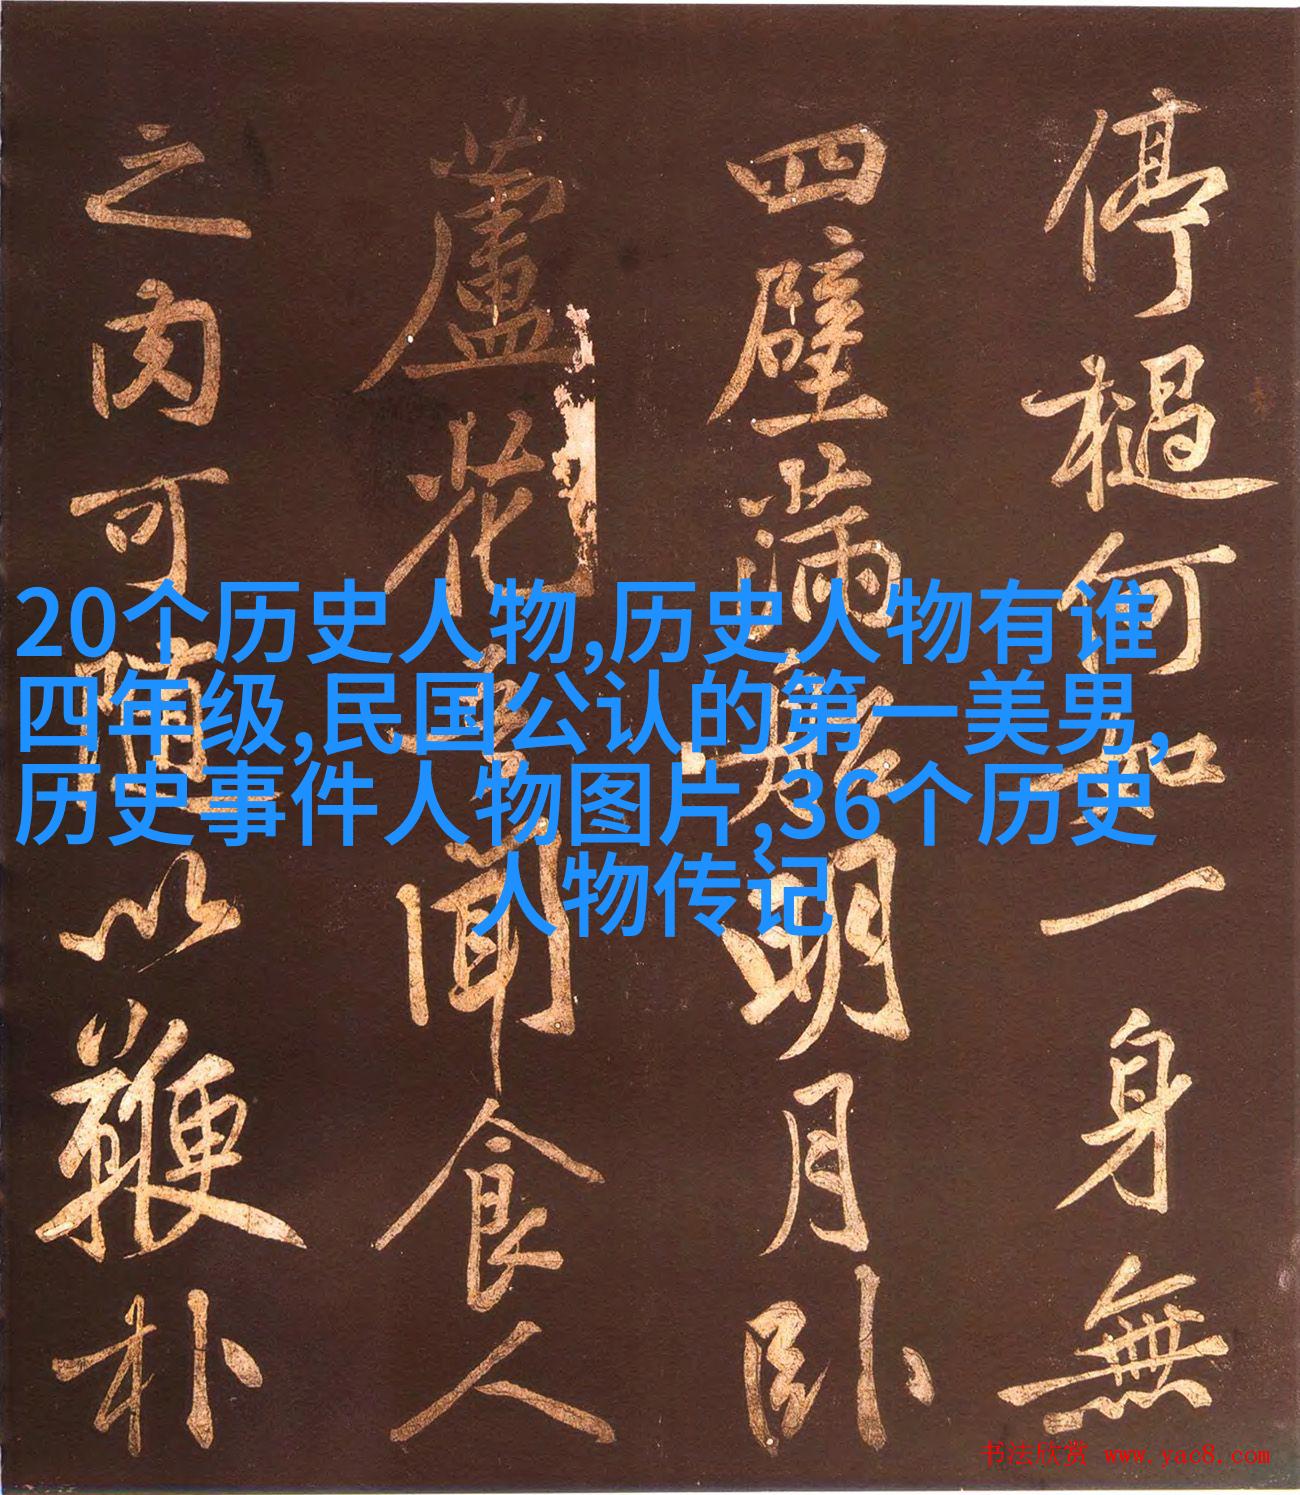 停檛何如一身無
四壁滿船明月卧
蘆花吾聞食人
之肉可隨以鞭朴
20个历史人物,历史人物有谁
四年级,民国公认的第一美男,
历史事件人物图片,36个历史
人物传记
书法欣赏 www.yac8.com